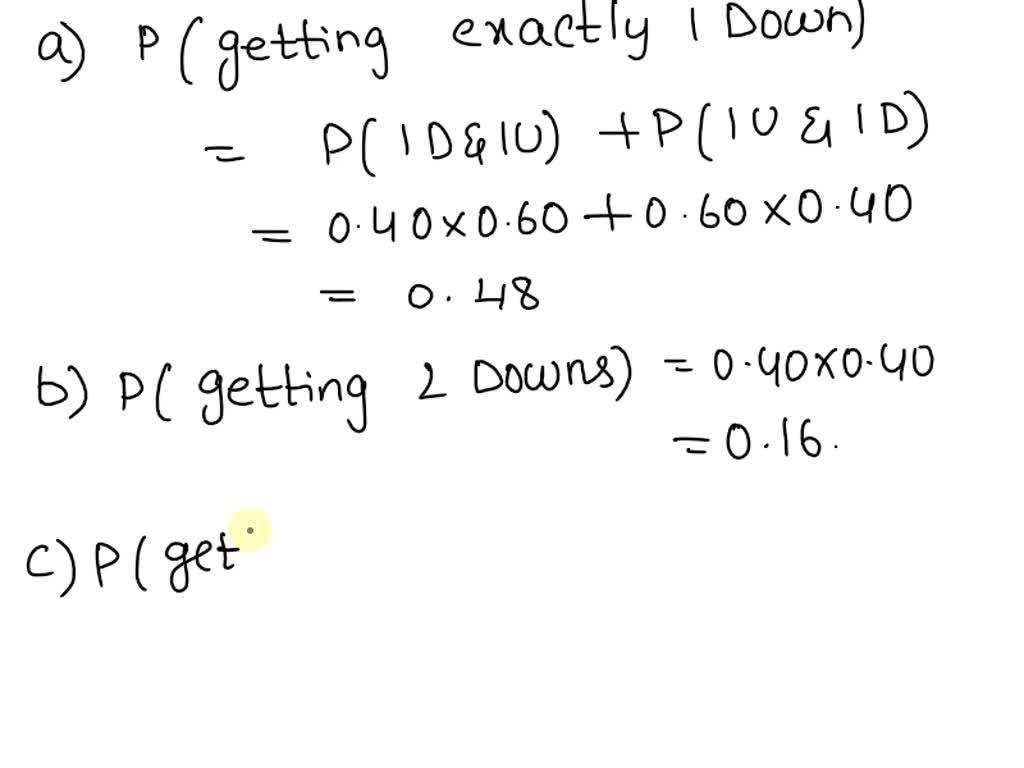 a) P(getting exactly 1 Down)
= P(1D&1U) + P(1U & 1D)
= 0.40×0.60 + 0.60×0.40
= 0.48
b) P(getting 2 Downs) = 0.40×0.40
= 0.16.
c) P(get